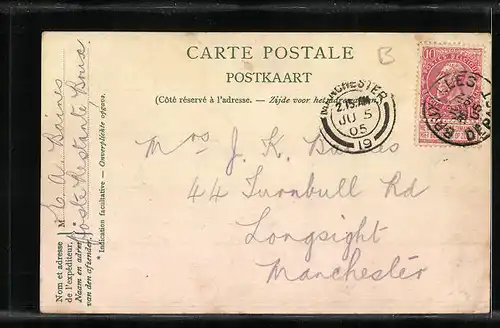 CARTE POSTALE
POSTKAART
(Côté réservé à l'adresse. — Zijde voor het adres
B
10
MANCHESTER
2.15 AM
JU 5
05
19
DEPART
Mrs J. K. Baines
44 Turnbull Rd
Longsight
Manchester
Nom et adresse de l'expéditeur.
Naam en adres van den afzender.
M
A. Baines
Poste Restante
* Indication facultative — Onverplichte opgave.